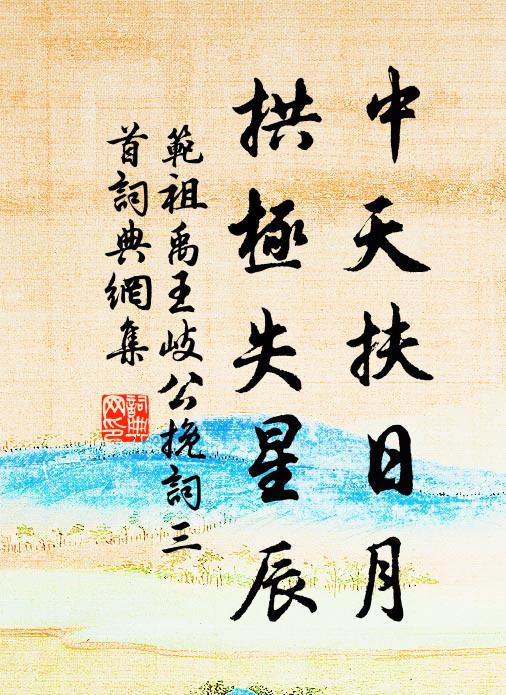 中天扶日月
拱極失星辰
範祖禹王岐公挽詞三
首詞典網集
詞典
网印